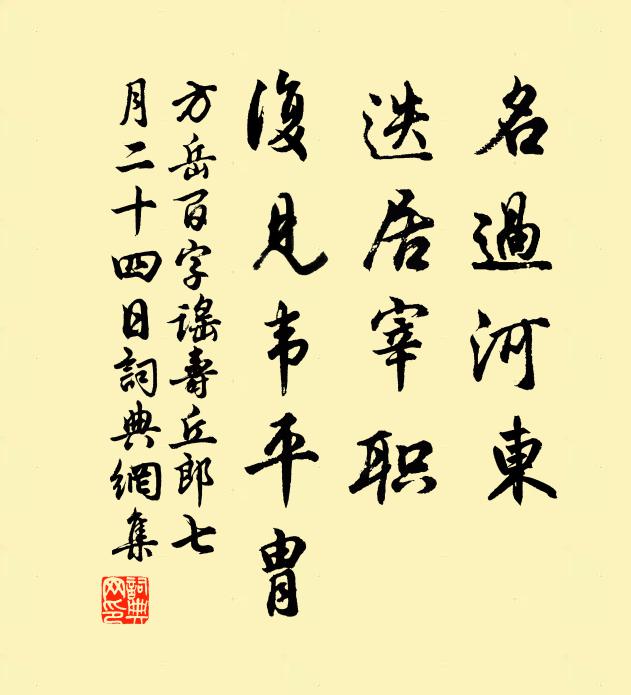 名過河東
迭居宰职
復見韦平胄
方岳百字谣壽丘郎七
月二十四日詞典網集
詞典网印